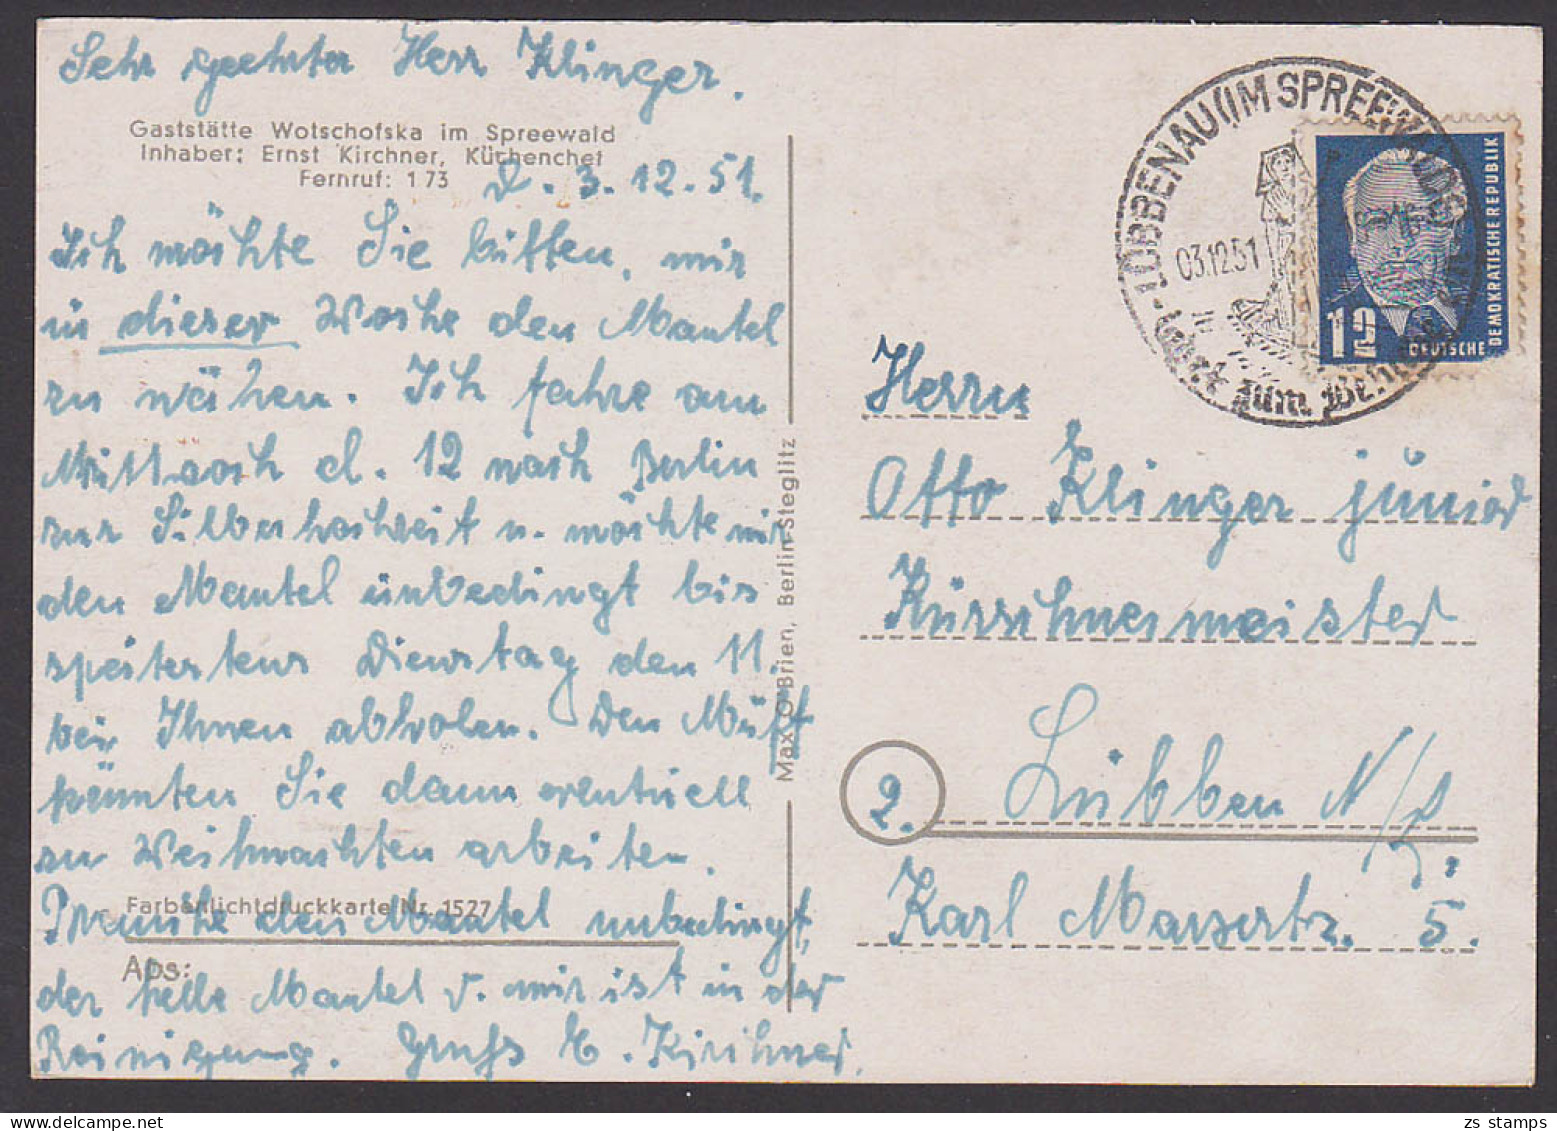 Sehr geehrter Herr Klinger.
Gaststätte Wotschofska im Spreewald
Inhaber: Ernst Kirchner, Küchenchef
Fernruf: 1 73
d. 3.12.51.
Ich möchte Sie bitten, mir
in dieser Woche den Mantel
zu nähen. Ich fahre am
Mittwoch d. 12 nach Berlin
zur Silberhochzeit u. möchte mir
den Mantel unbedingt bis
spätestens Dienstag den 11.
bei Ihnen abholen. Den Muff
könnten Sie dann eventuell
zu Weihnachten arbeiten.
Farbenlichtdruckkarte Nr. 1527
Brauche den Mantel unbedingt,
Abs:
der helle Mantel v. mir ist in der
Reinigung. Gruß E. Kirchner.
Max O'Brien, Berlin-Steglitz
LÜBBENAU (IM SPREEWALD)
03.12.51
zum
12
DEUTSCHE DEMOKRATISCHE REPUBLIK
Herrn
Otto Klinger junior
Kürschnermeister
2.
Lübben N/L
Karl Marxstr. 5.
zs stamps